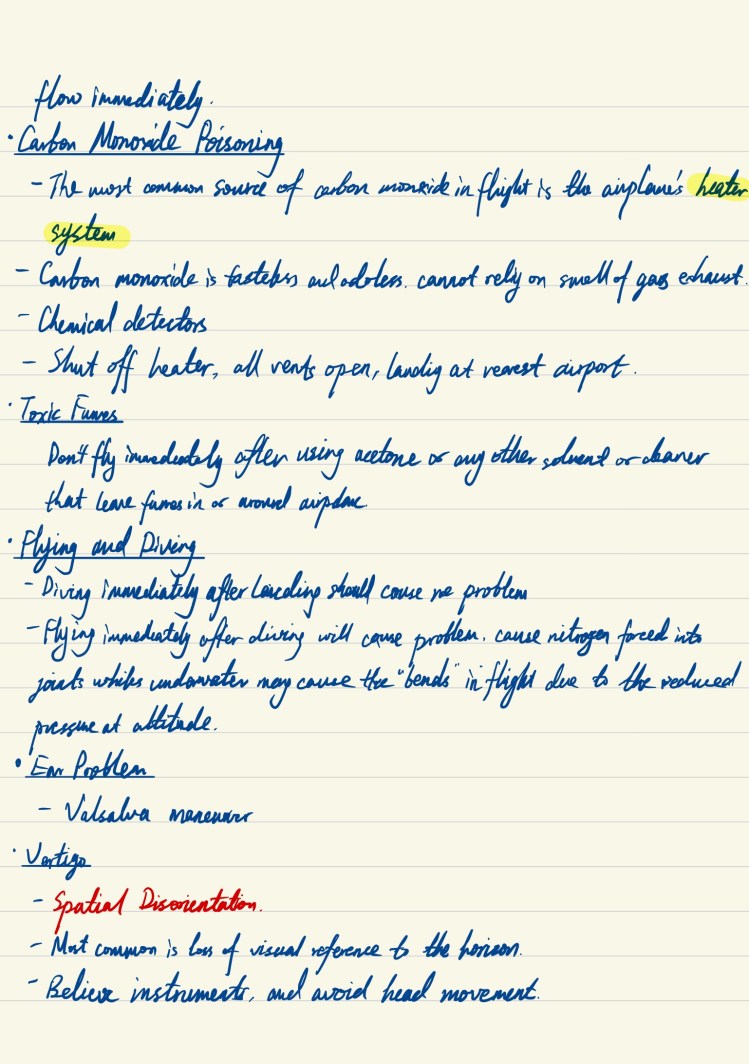 flow immediately.
· Carbon Monoxide Poisoning
- The most common source of carbon monoxide in flight is the airplane's heater
system
- Carbon monoxide is tasteless and odorless. cannot rely on smell of gas exhaust.
- Chemical detectors
- Shut off heater, all vents open, landig at nearest airport.
· Toxic Fumes
Don't fly immediately after using acetone or any other solvent or cleaner
that leave fumes in or around airplane.
· Flying and Diving
- Diving immediately after landing should cause no problem
- Flying immediately after diving will cause problem. cause nitrogen forced into
joints whiles underwater may cause the "bends" in flight due to the reduced
pressure at altitude.
• Ear Problem
- Valsalva maneuver
· Vertigo
- Spatial Disorientation.
- Most common is loss of visual reference to the horizon.
- Believe instruments, and avoid head movement.